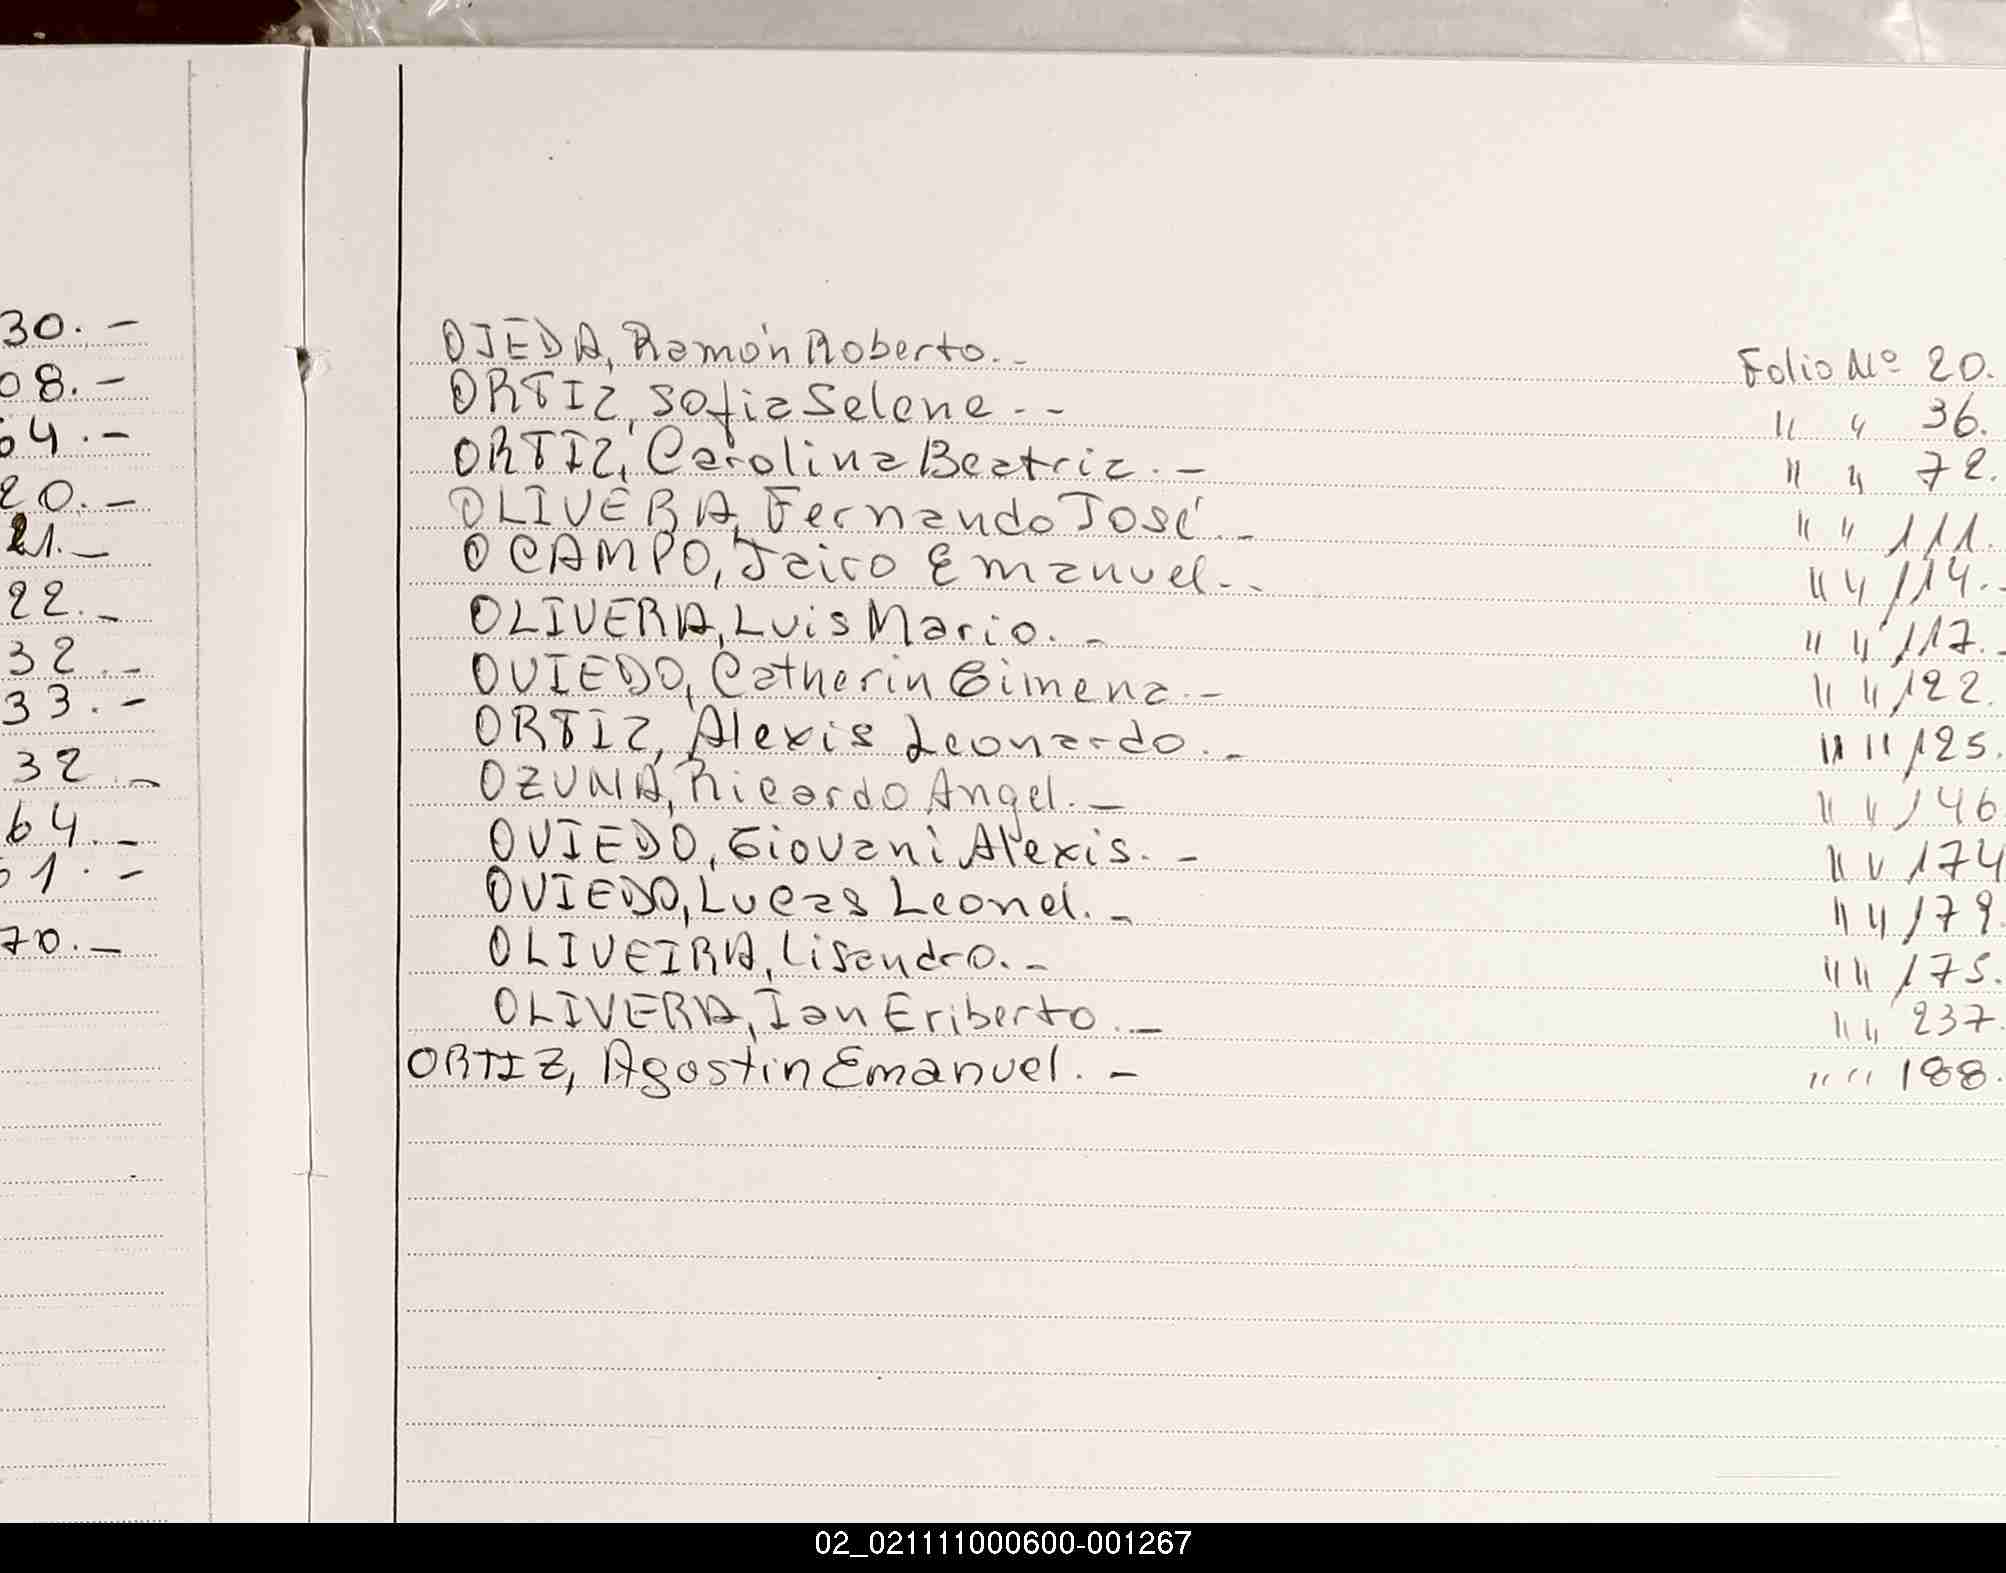 30.-
08.-
64.-
20.-
21.-
22.-
32.-
33.-
32.-
64.-
61.-
70.-
OJEDA, Ramón Roberto.- Folio Nº 20.
ORTIZ, Sofia Selene.-- " " 36.
ORTIZ, Carolina Beatriz.- " " 72.
OLIVERA, Fernando José.- " " 111.
OCAMPO, Jairo Emanuel.- " " 114.-
OLIVERA, Luis Mario.- " " 117.-
OVIEDO, Catherin Gimena.- " " 122.
ORTIZ, Alexis Leonardo.- " " 125.
OZUNA, Ricardo Angel.- " " 146
OVIEDO, Giovani Alexis.- " " 174
OVIEDO, Lucas Leonel.- " " 179.
OLIVEIRA, Lisandro.- " " 175.
OLIVERA, Ian Eriberto.- " " 237.
ORTIZ, Agostin Emanuel.- " " 188.
02_021111000600-001267